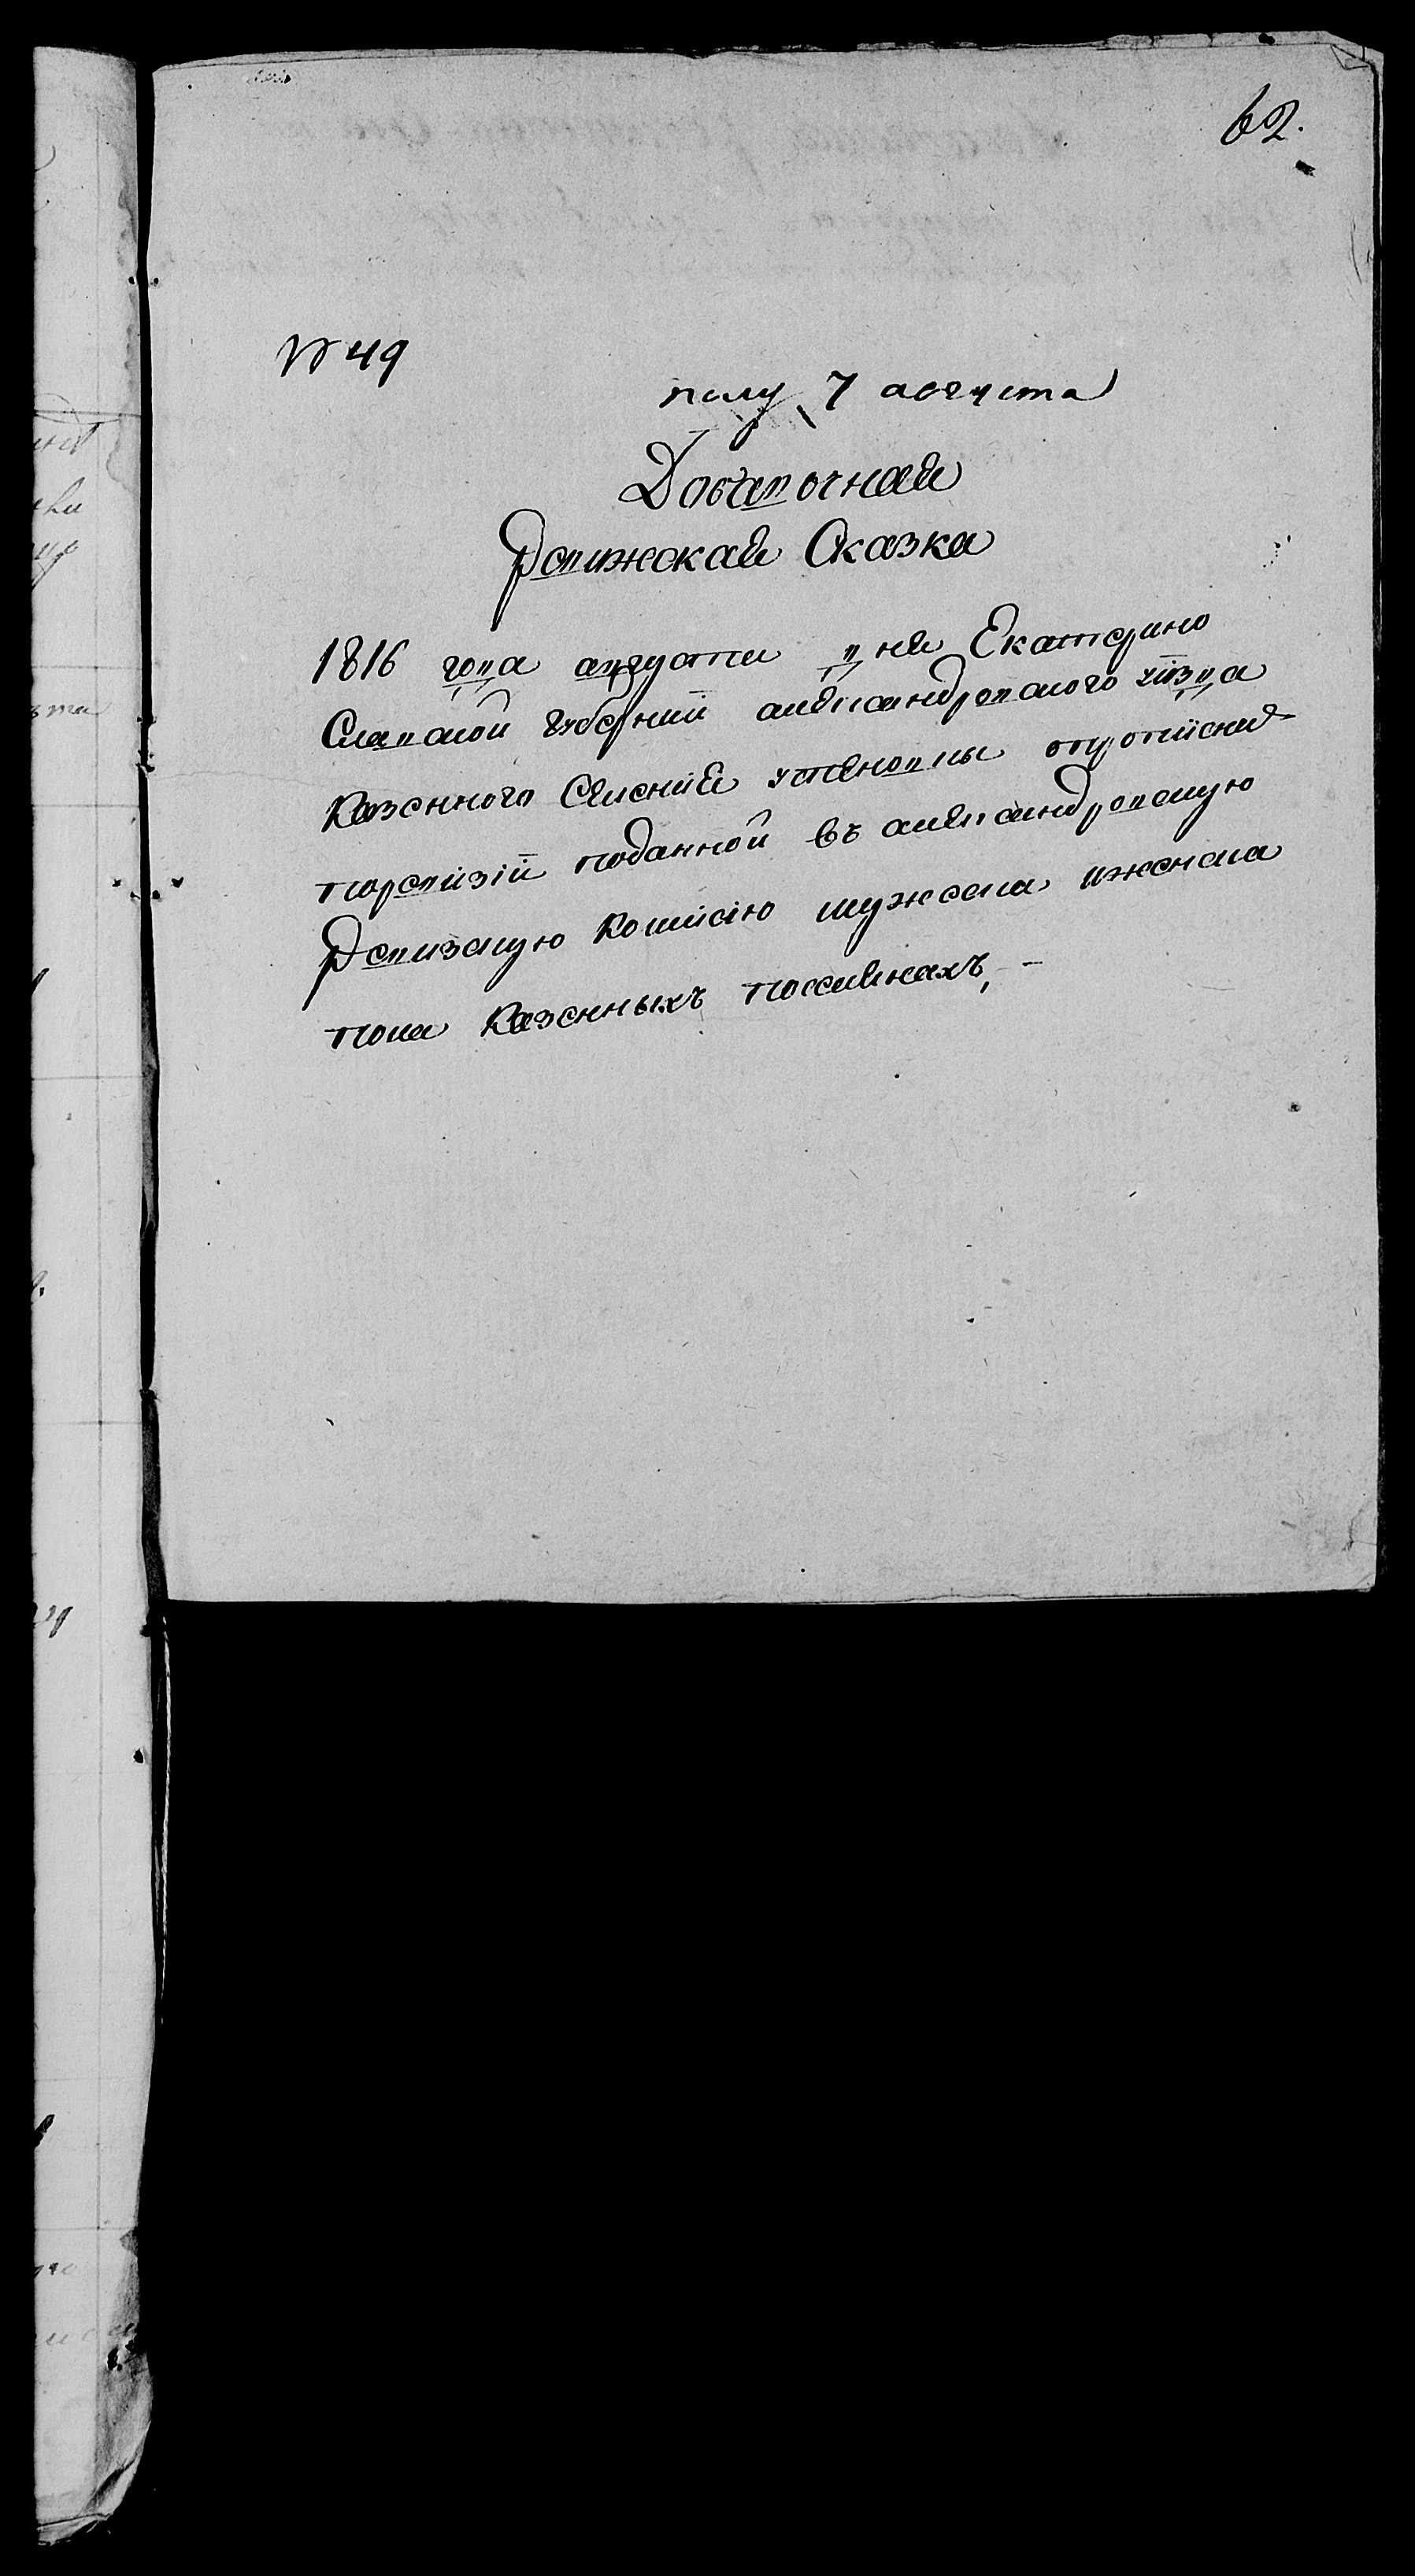 62.
№ 49
полу. 7 августа
Добавочная
Ревижская Сказка
1816 года августа дня Екатерино
Славской губернии александровского уезда
Казенного Селения
поревизии поданной въ александровскую
Ревизскую Комисию мужеска иженска
пола Казенныхъ поселянахъ, -